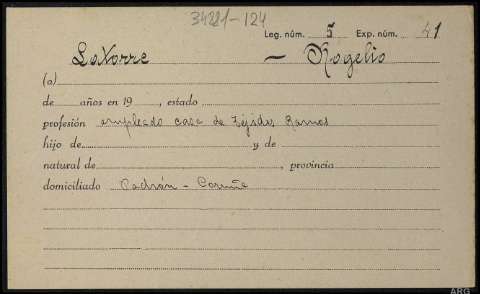 34221-124
Leg. núm. 5 Exp. núm. 41
Latorre — Rogelio
(a)
de años en 19 , estado
profesión empleado casa de Tejidos Ramos
hijo de y de
natural de , provincia
domiciliado Padrón - Coruña
ARG